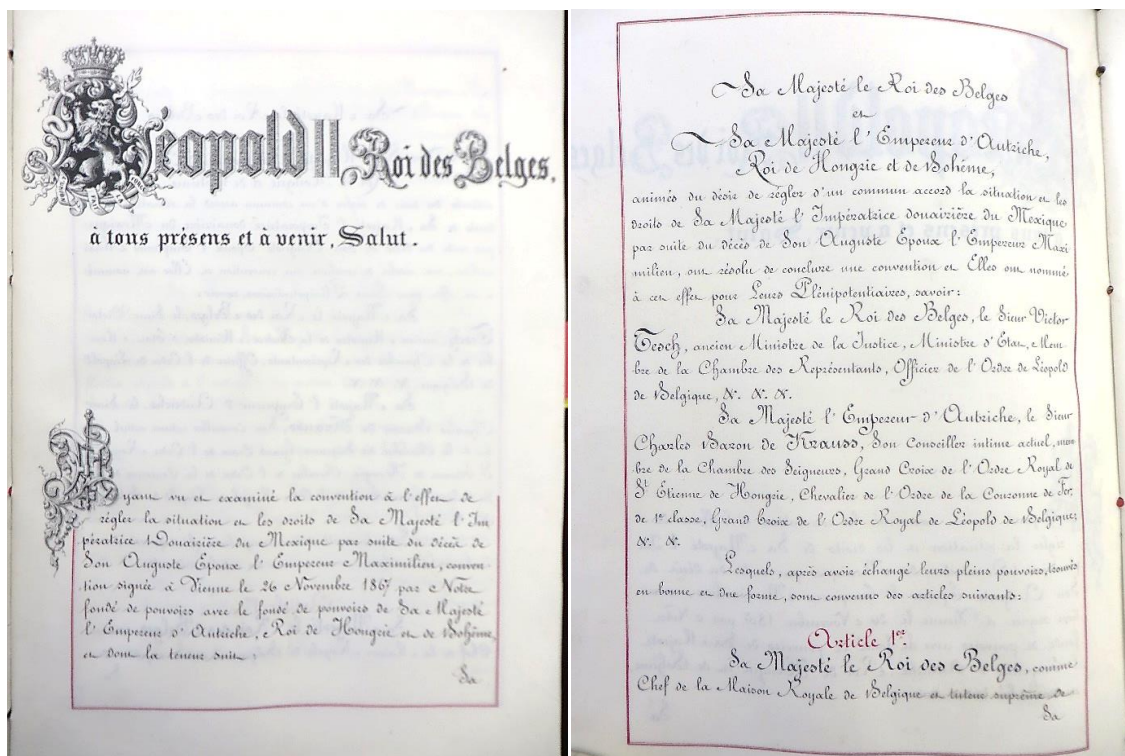 Léopold II Roi des Belges,
à tous présens et à venir, Salut.
Ayant vu et examiné la convention à l'effet de
régler la situation et les droits de Sa Majesté l'Im
pératrice Douairière du Mexique par suite du décès de
Son Auguste Epoux l'Empereur Maximilien, conven-
tion signée à Vienne le 26 Novembre 1867 par Notre
fondé de pouvoirs avec le fondé de pouvoirs de Sa Majesté
l'Empereur d'Autriche, Roi de Hongrie et de Bohême,
et dont la teneur suit,
Sa
Sa Majesté le Roi des Belges
et
Sa Majesté l'Empereur d'Autriche,
Roi de Hongrie et de Bohême,
animés du désir de régler d'un commun accord la situation et les
droits de Sa Majesté l'Impératrice douairière du Mexique
par suite du décès de Son Auguste Epoux l'Empereur Maxi
milien, ont résolu de conclure une convention et Elles ont nommé
à cet effet pour Leurs Plénipotentiaires, savoir:
Sa Majesté le Roi des Belges, le Sieur Victor
Tesch, ancien Ministre de la Justice, Ministre d'Etat, Mem-
bre de la Chambre des Représentants, Officier de l'Ordre de Léopold
de Belgique, &. &. &.
Sa Majesté l'Empereur d'Autriche, le Sieur
Charles Baron de Krauss, Son Conseiller intime actuel, mem-
bre de la Chambre des Seigneurs, Grand Croix de l'Ordre Royal de
St Etienne de Hongrie, Chevalier de l'Ordre de la Couronne de Fer,
de 1e classe, Grand Croix de l'Ordre Royal de Léopold de Belgique,
&. &.
Lesquels, après avoir échangé leurs pleins pouvoirs, trouvés
en bonne et due forme, sont convenus des articles suivants:
Article 1er.
Sa Majesté le Roi des Belges, comme
Chef de la Maison Royale de Belgique et tuteur suprême de
Sa